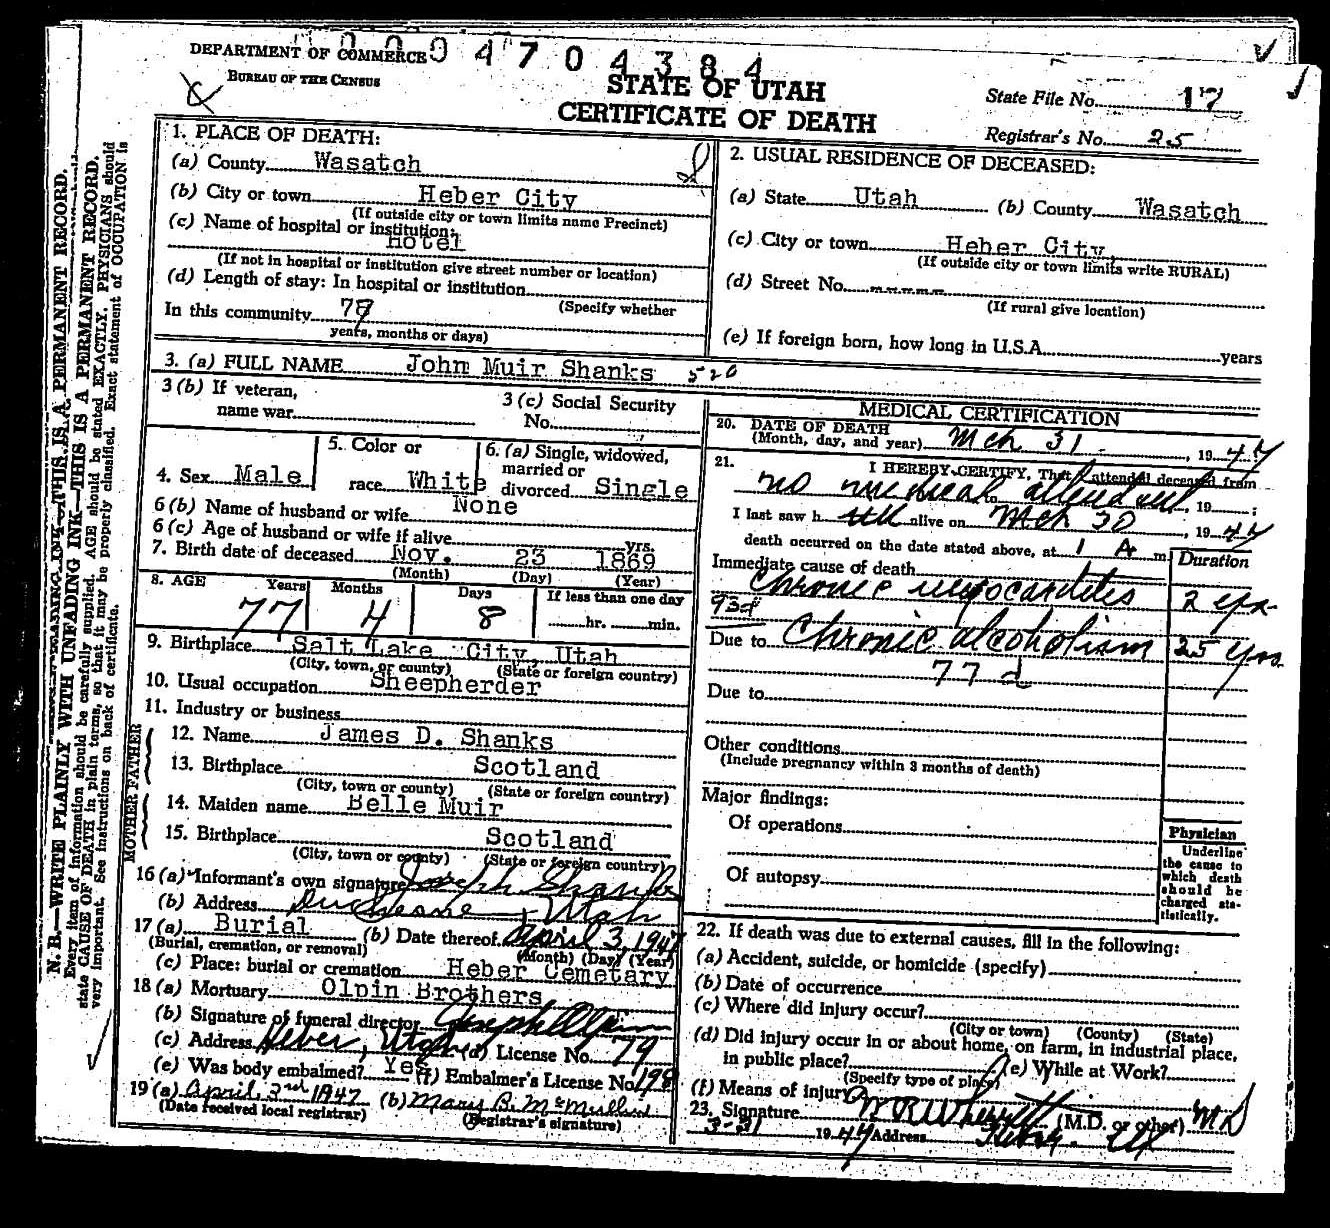 0004704384
DEPARTMENT OF COMMERCE
BUREAU OF THE CENSUS
STATE OF UTAH
CERTIFICATE OF DEATH
State File No. 17
Registrar's No. 25
N. B.—WRITE PLAINLY WITH UNFADING INK—THIS IS A PERMANENT RECORD.
Every item of information should be carefully supplied. AGE should be stated EXACTLY. PHYSICIANS should
state CAUSE OF DEATH in plain terms, so that it may be properly classified. Exact statement of OCCUPATION is
very important. See instructions on back of certificate.
1. PLACE OF DEATH:
(a) County Wasatch
(b) City or town Heber City
(If outside city or town limits name Precinct)
(c) Name of hospital or institution:
Hotel
(If not in hospital or institution give street number or location)
(d) Length of stay: In hospital or institution
(Specify whether
In this community 77
years, months or days)
2. USUAL RESIDENCE OF DECEASED:
(a) State Utah (b) County Wasatch
(c) City or town Heber City,
(If outside city or town limits write RURAL)
(d) Street No. -----
(If rural give location)
(e) If foreign born, how long in U.S.A. years
3. (a) FULL NAME John Muir Shanks 520
3 (b) If veteran,
name war
3 (c) Social Security
No.
4. Sex Male
5. Color or
race White
6. (a) Single, widowed,
married or
divorced Single
6 (b) Name of husband or wife None
6 (c) Age of husband or wife if alive yrs.
7. Birth date of deceased Nov. 23 1869
(Month) (Day) (Year)
8. AGE Years Months Days If less than one day
77 4 8 hr. min.
9. Birthplace Salt Lake City, Utah
(City, town, or county) (State or foreign country)
10. Usual occupation Sheepherder
11. Industry or business
FATHER
12. Name James D. Shanks
13. Birthplace Scotland
(City, town or county) (State or foreign country)
MOTHER
14. Maiden name Belle Muir
15. Birthplace Scotland
(City, town or county) (State or foreign country)
16 (a) Informant's own signature Joseph Shanks
(b) Address Duchesne, Utah
17 (a) Burial (b) Date thereof April 3, 1947
(Burial, cremation, or removal) (Month) (Day) (Year)
(c) Place: burial or cremation Heber Cemetary
18 (a) Mortuary Olpin Brothers
(b) Signature of funeral director Joseph Olpin
(c) Address Heber, Utah (d) License No. 79
(e) Was body embalmed? Yes (f) Embalmer's License No. 198
19 (a) April 3rd 1947 (b) Mary B. McMullin
(Date received local registrar) (Registrar's signature)
MEDICAL CERTIFICATION
20. DATE OF DEATH
(Month, day, and year) Mch 31, 1947
21. I HEREBY CERTIFY, That I attended deceased from
no medical attendant to , 19 ;
I last saw h alive on Mch 30, 1947
death occurred on the date stated above, at 1 A m
Duration
Immediate cause of death
Chronic myocarditis 2 yrs
93d
Due to Chronic alcoholism 25 yrs
77 d
Due to
Other conditions
(Include pregnancy within 3 months of death)
Major findings:
Of operations
Of autopsy
Physician
Underline
the cause to
which death
should be
charged sta-
tistically.
22. If death was due to external causes, fill in the following:
(a) Accident, suicide, or homicide (specify)
(b) Date of occurrence
(c) Where did injury occur?
(City or town) (County) (State)
(d) Did injury occur in or about home, on farm, in industrial place,
in public place? (e) While at Work?
(Specify type of place)
(f) Means of injury
23. Signature W R Wherritt (M.D. or other) MD
3-31 1947 Address Heber Ut